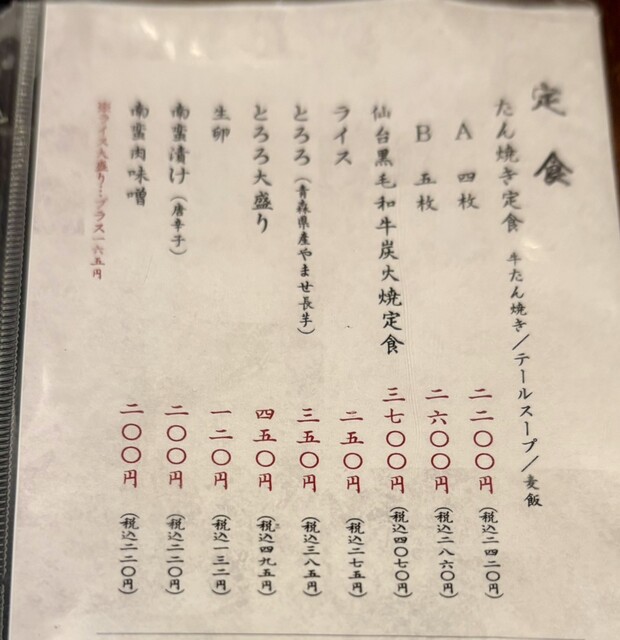 定食
たん焼き定食 牛たん焼き/テールスープ/麦飯
A 四枚 二二〇〇円(税込二四二〇円)
B 五枚 二六〇〇円(税込二八六〇円)
仙台黒毛和牛炭火焼定食 三七〇〇円(税込四〇七〇円)
ライス 二五〇円(税込二七五円)
とろろ(青森県産やませ長芋) 三五〇円(税込三八五円)
とろろ大盛り 四五〇円(税込四九五円)
生卵 一二〇円(税込一三二円)
南蛮漬け(唐辛子) 二〇〇円(税込二二〇円)
南蛮肉味噌 二〇〇円(税込二二〇円)
※ライス大盛り…プラス一六五円